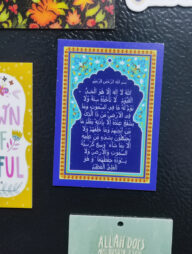 بسم الله الرحمن الرحيم
الله لا إله إلا هو الحي
القيوم لا تأخذه سنة ولا
نوم له ما في السموات وما
في الأرض من ذا الذي
يشفع عنده إلا بإذنه يعلم ما
بين أيديهم وما خلفهم ولا
يحيطون بشيء من علمه
إلا بما شاء وسع كرسيه
السموات والأرض ولا
يئوده حفظهما وهو
العلي العظيم
ALLAH DOES